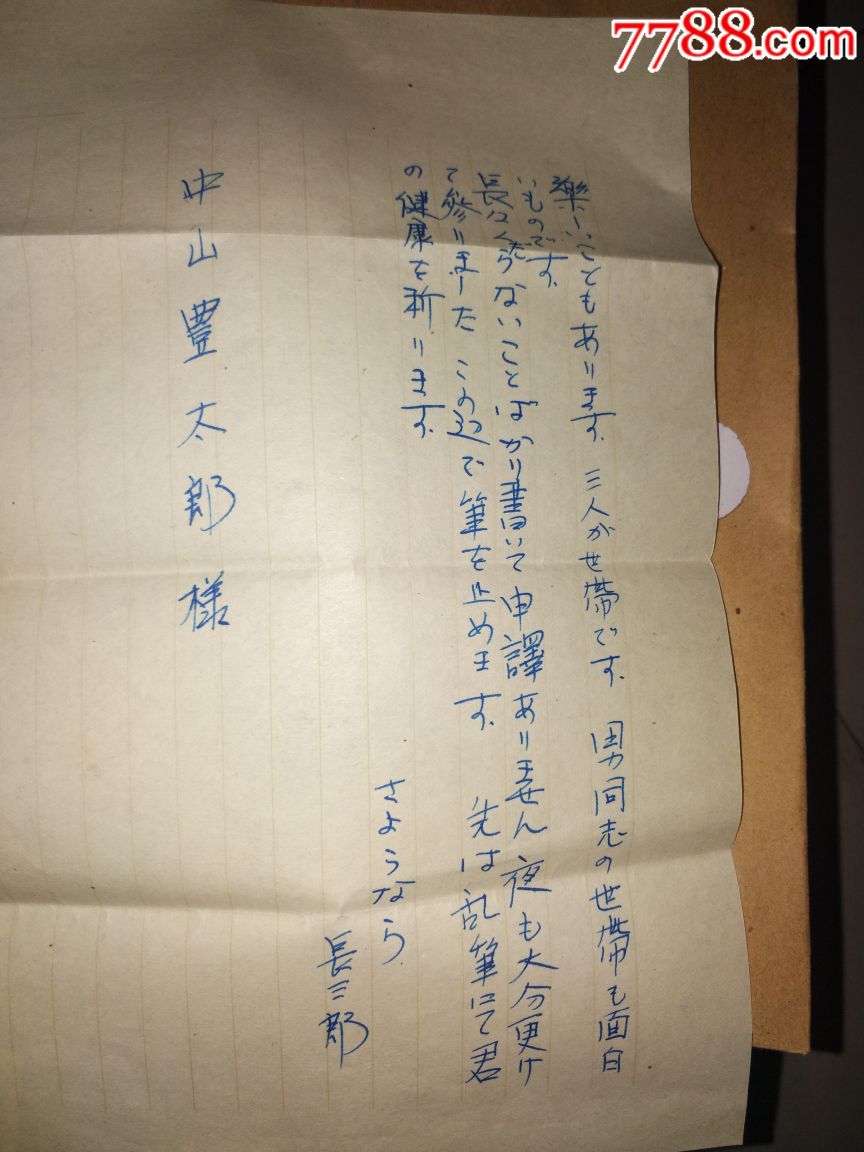 7788.com
樂しいこともあります。三人が世帯です。男同志の世帯も面白
いものです。
長々くだらないことばかり書いて申譯ありません 夜も大分更け
て参りました この辺で筆を止めます。 先は乱筆にて君
の健康を祈ります。
さようなら
長三郎
中山豊太郎様